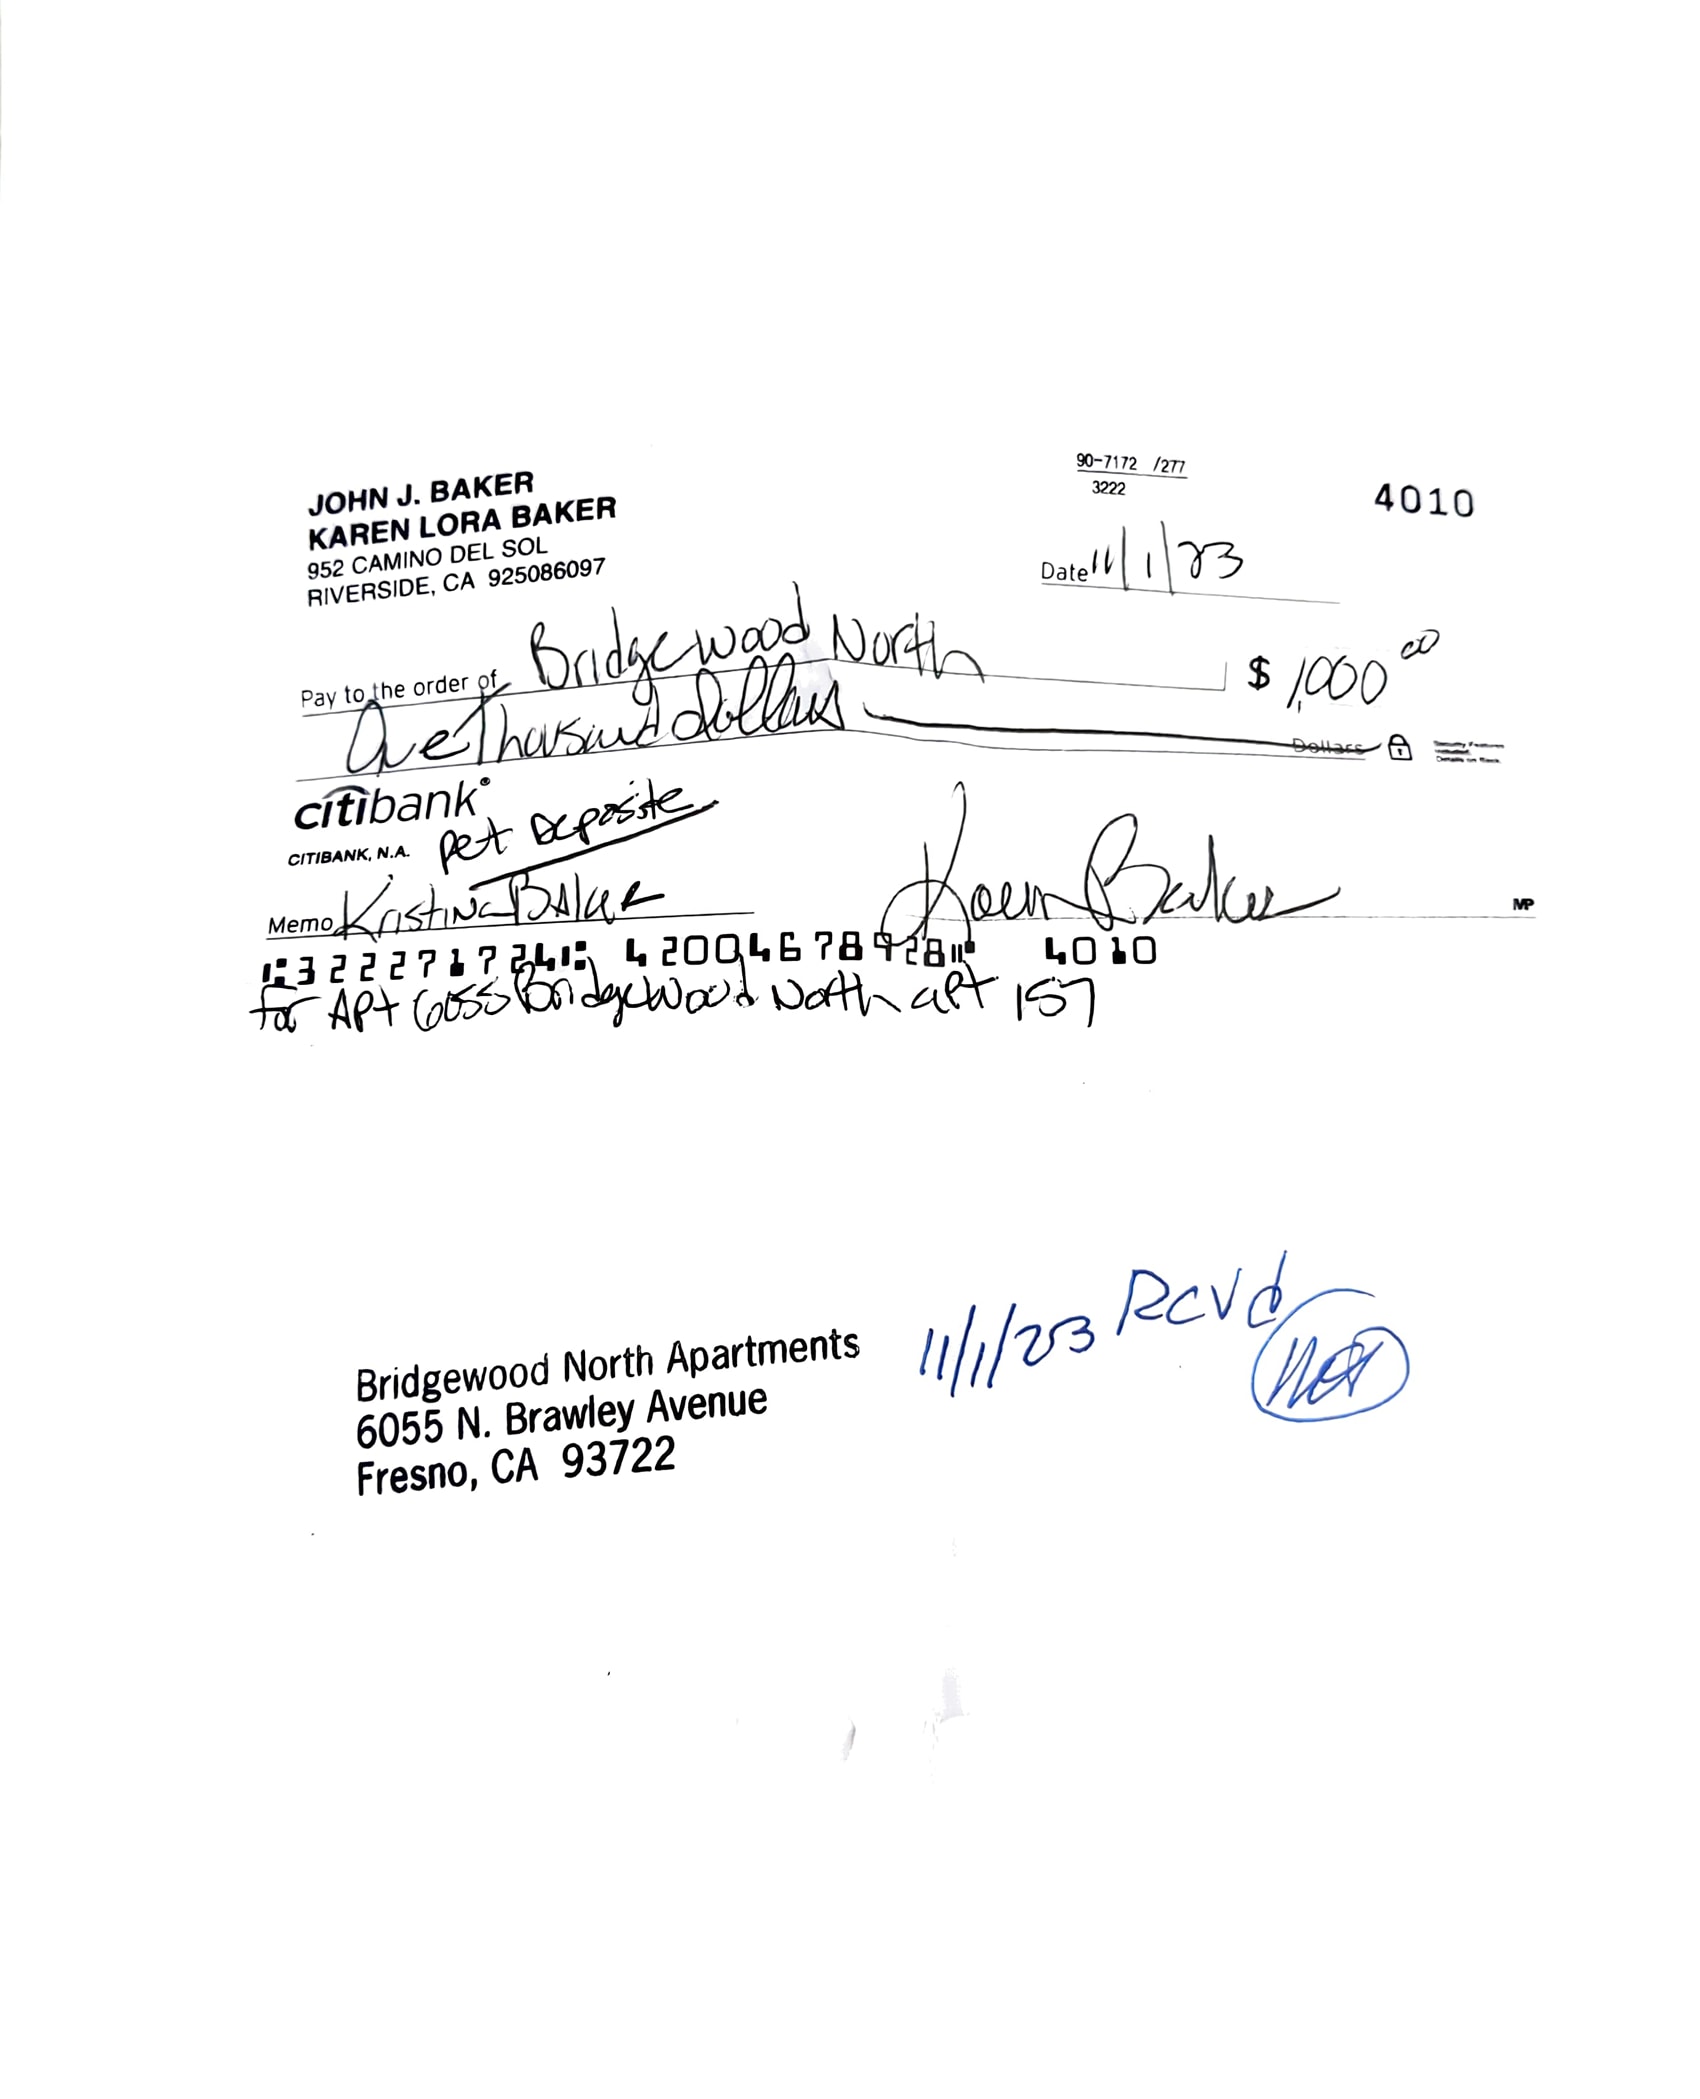 JOHN J. BAKER
KAREN LORA BAKER
952 CAMINO DEL SOL
RIVERSIDE, CA 925086097
90-7172 /277
3222
4010
Date 11/1/23
Pay to the order of Bridgewood North $ 1,000 00
One Thousand dollars Dollars
Security Features
Details on Back.
citibank®
CITIBANK, N.A.
Pet Deposite
Memo Kristina Baker Karen Baker MP
⑆322271724⑆ 42004678928⑈ 4010
for APt 6055 Bridgewood North apt 157
11/1/23 RCVd
Bridgewood North Apartments
6055 N. Brawley Avenue
Fresno, CA 93722